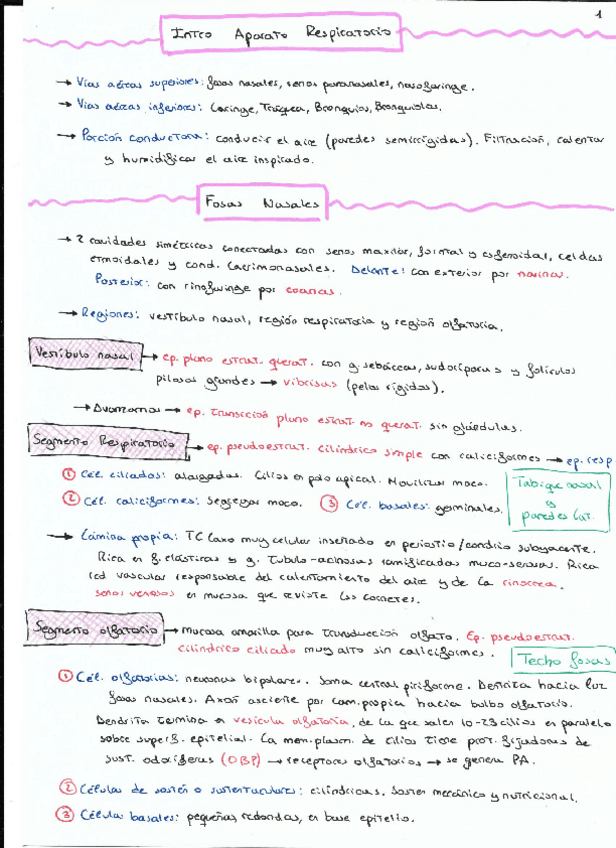 1
Intro Aparato Respiratorio
→ Vías aéreas superiores: fosas nasales, senos paranasales, nasofaringe.
→ Vías aéreas inferiores: Laringe, Tráquea, Bronquios, Bronquiolos.
→ Porción conductora: conducir el aire (paredes semirrígidas). Filtración, calentar
y humidificar el aire inspirado.
Fosas Nasales
→ 2 cavidades simétricas conectadas con senos maxilar, frontal y esfenoidal, celdas
etmoidales y cond. lacrimonasales. Delante: con exterior por narinas.
Posterior: con rinofaringe por coanas.
→ Regiones: vestíbulo nasal, región respiratoria y región olfatoria.
Vestíbulo nasal → ep. plano estrat. querat. con g. sebáceas, sudoríparas y folículos
pilosos grandes → vibrisas (pelos rígidos).
→ ep. transición plano estrat. no querat. sin glándulas.
Segmento Respiratorio → ep. pseudoestrat. cilíndrico simple con caliciformes → ep. resp
① Cél. ciliadas: alargadas. Cilios en polo apical. Movilizar moco.
② Cél. caliciformes: segregar moco. ③ Cél. basales: germinales.
Tabique nasal
y
paredes lat.
→ Lámina propia: TC laxo muy celular insertado en periostio/condrio subyacente.
Rica en f. elásticas y g. tubulo-acinosas ramificadas muco-serosas. Rica
red vascular responsable del calentamiento del aire y de la rinorrea.
senos venosos en mucosa que reviste los cornetes.
Segmento olfatorio → mucosa amarilla para transducción olfato. Ep. pseudoestrat.
cilíndrico ciliado muy alto sin caliciformes.
Techo fosas
① Cél. olfatorias: neuronas bipolares. Soma central piriforme. Dendrita hacia luz
fosas nasales. Axón asciende por lam. propia hacia bulbo olfatorio.
Dendrita termina en vesícula olfatoria, de la que salen 10-23 cilios en paralelo
sobre superf. epitelial. La mem. plasm. de cilios tiene prot. fijadoras de
sust. odoríferas (OBP) → receptores olfatorios → se genera PA.
② Células de sostén o sustentaculares: cilíndricas. Sostén mecánico y nutricional.
③ Células basales: pequeñas, redondas, en base epitelio.